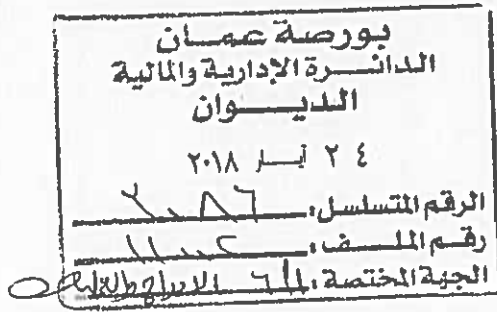 بورصة عمان
الدائرة الإدارية والمالية
الديوان
٢٤ أيار ٢٠١٨
الرقم المتسلسل:
رقم الملف:
الجهة المختصة: الإدراج